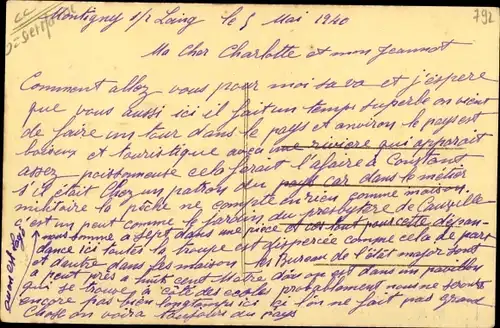 792
Montigny s/r Loing le 5 Mai 1940
Ma Cher Charlotte et mon Jeannot
Comment allez vous pour moi sa va et j'espere
que vous aussi ici il fait un temps superbe on vient
de faire un tour dans le pays et environ le pays est
boiseux et touristique avec une riviere qui apparait
assez poissonneuse cela ferait l'afaire à Constant
s'il était chez un patron du pays car dans le métier
militaire la pêche ne compte en rien comme maison
c'est un peut comme le jardin du presbytère de
nous somme a sept dans une pièce et cet tout pour cette dépen-
dance ici toutes la troupe est dispersée compris cela de par
et dautre dans les maison les Bureau de l'état major sont
a peut près huit cent Metre dici on est dans un pavillon
qui se trouve à côté des ecoles probablement nous ne serons
encore pas bien longtemps ici si l'on ne fait pas grand
Chose on voira toujours du pays